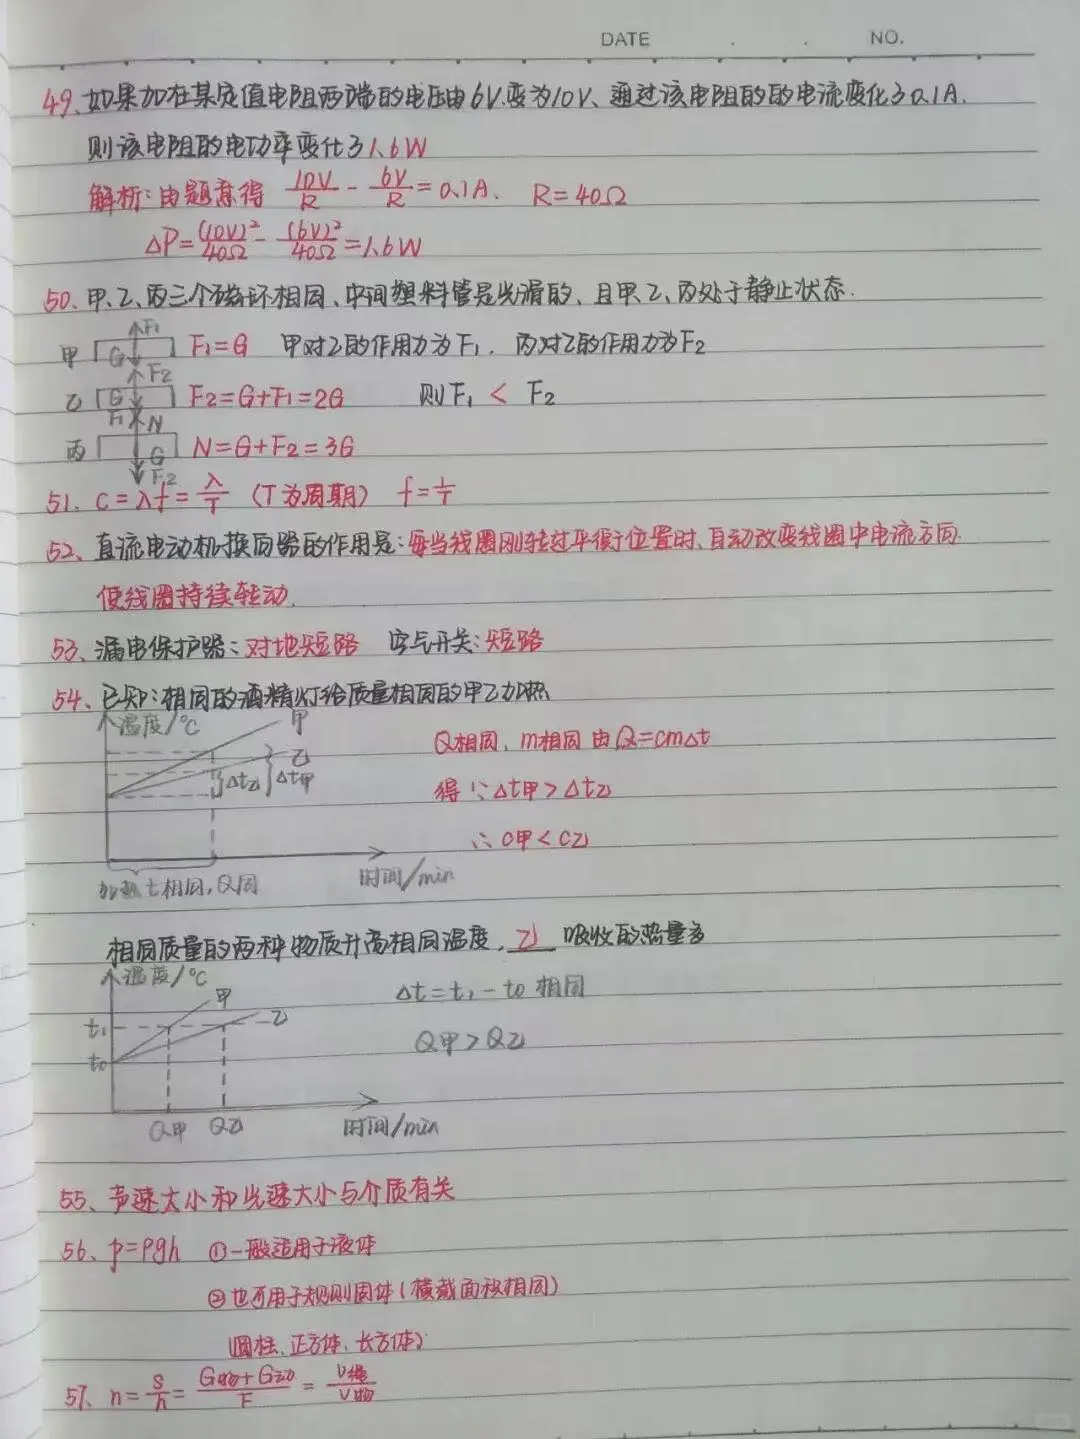 DATE . . NO.
49、如果加在某定值电阻两端的电压由6V变为10V、通过该电阻的的电流变化了0.1A.
则该电阻的电功率变化了1.6W
解析:由题意得 10V/R - 6V/R = 0.1A. R=40Ω
ΔP= (10V)²/40Ω - (6V)²/40Ω =1.6W
50、甲、乙、丙三个磁环相同、中间塑料管是光滑的、且甲、乙、丙处于静止状态.
F1
甲 G F1=G 甲对乙的作用力为F1. 丙对乙的作用力为F2
F2
乙 G F2=G+F1=2G 则F1 < F2
F1 N
丙 G N=G+F2=3G
F2
51. c=λf=λ/T (T为周期) f=1/T
52、直流电动机换向器的作用是:每当线圈刚转过平衡位置时、自动改变线圈中电流方向.
使线圈持续转动.
53、漏电保护器:对地短路 空气开关:短路
54、已知:相同的酒精灯给质量相同的甲乙加热
温度/℃ 甲
乙 Q相同, m相同 由Q=cmΔt
Δt乙 Δt甲
得∵Δt甲>Δt乙
∴c甲<c乙
加热t相同,Q同 时间/min
相同质量的两种物质升高相同温度, 乙 吸收的热量多
温度/℃
甲 Δt=t1-t0 相同
t1 乙
Q甲>Q乙
t0
Q甲 Q乙 时间/min
55、声速大小和光速大小与介质有关
56、p=ρgh ①一般适用于液体
②也可用于规则固体(横截面积相同)
(圆柱、正方体、长方体)
57. n= s/h = G物+G动/F = v绳/v物